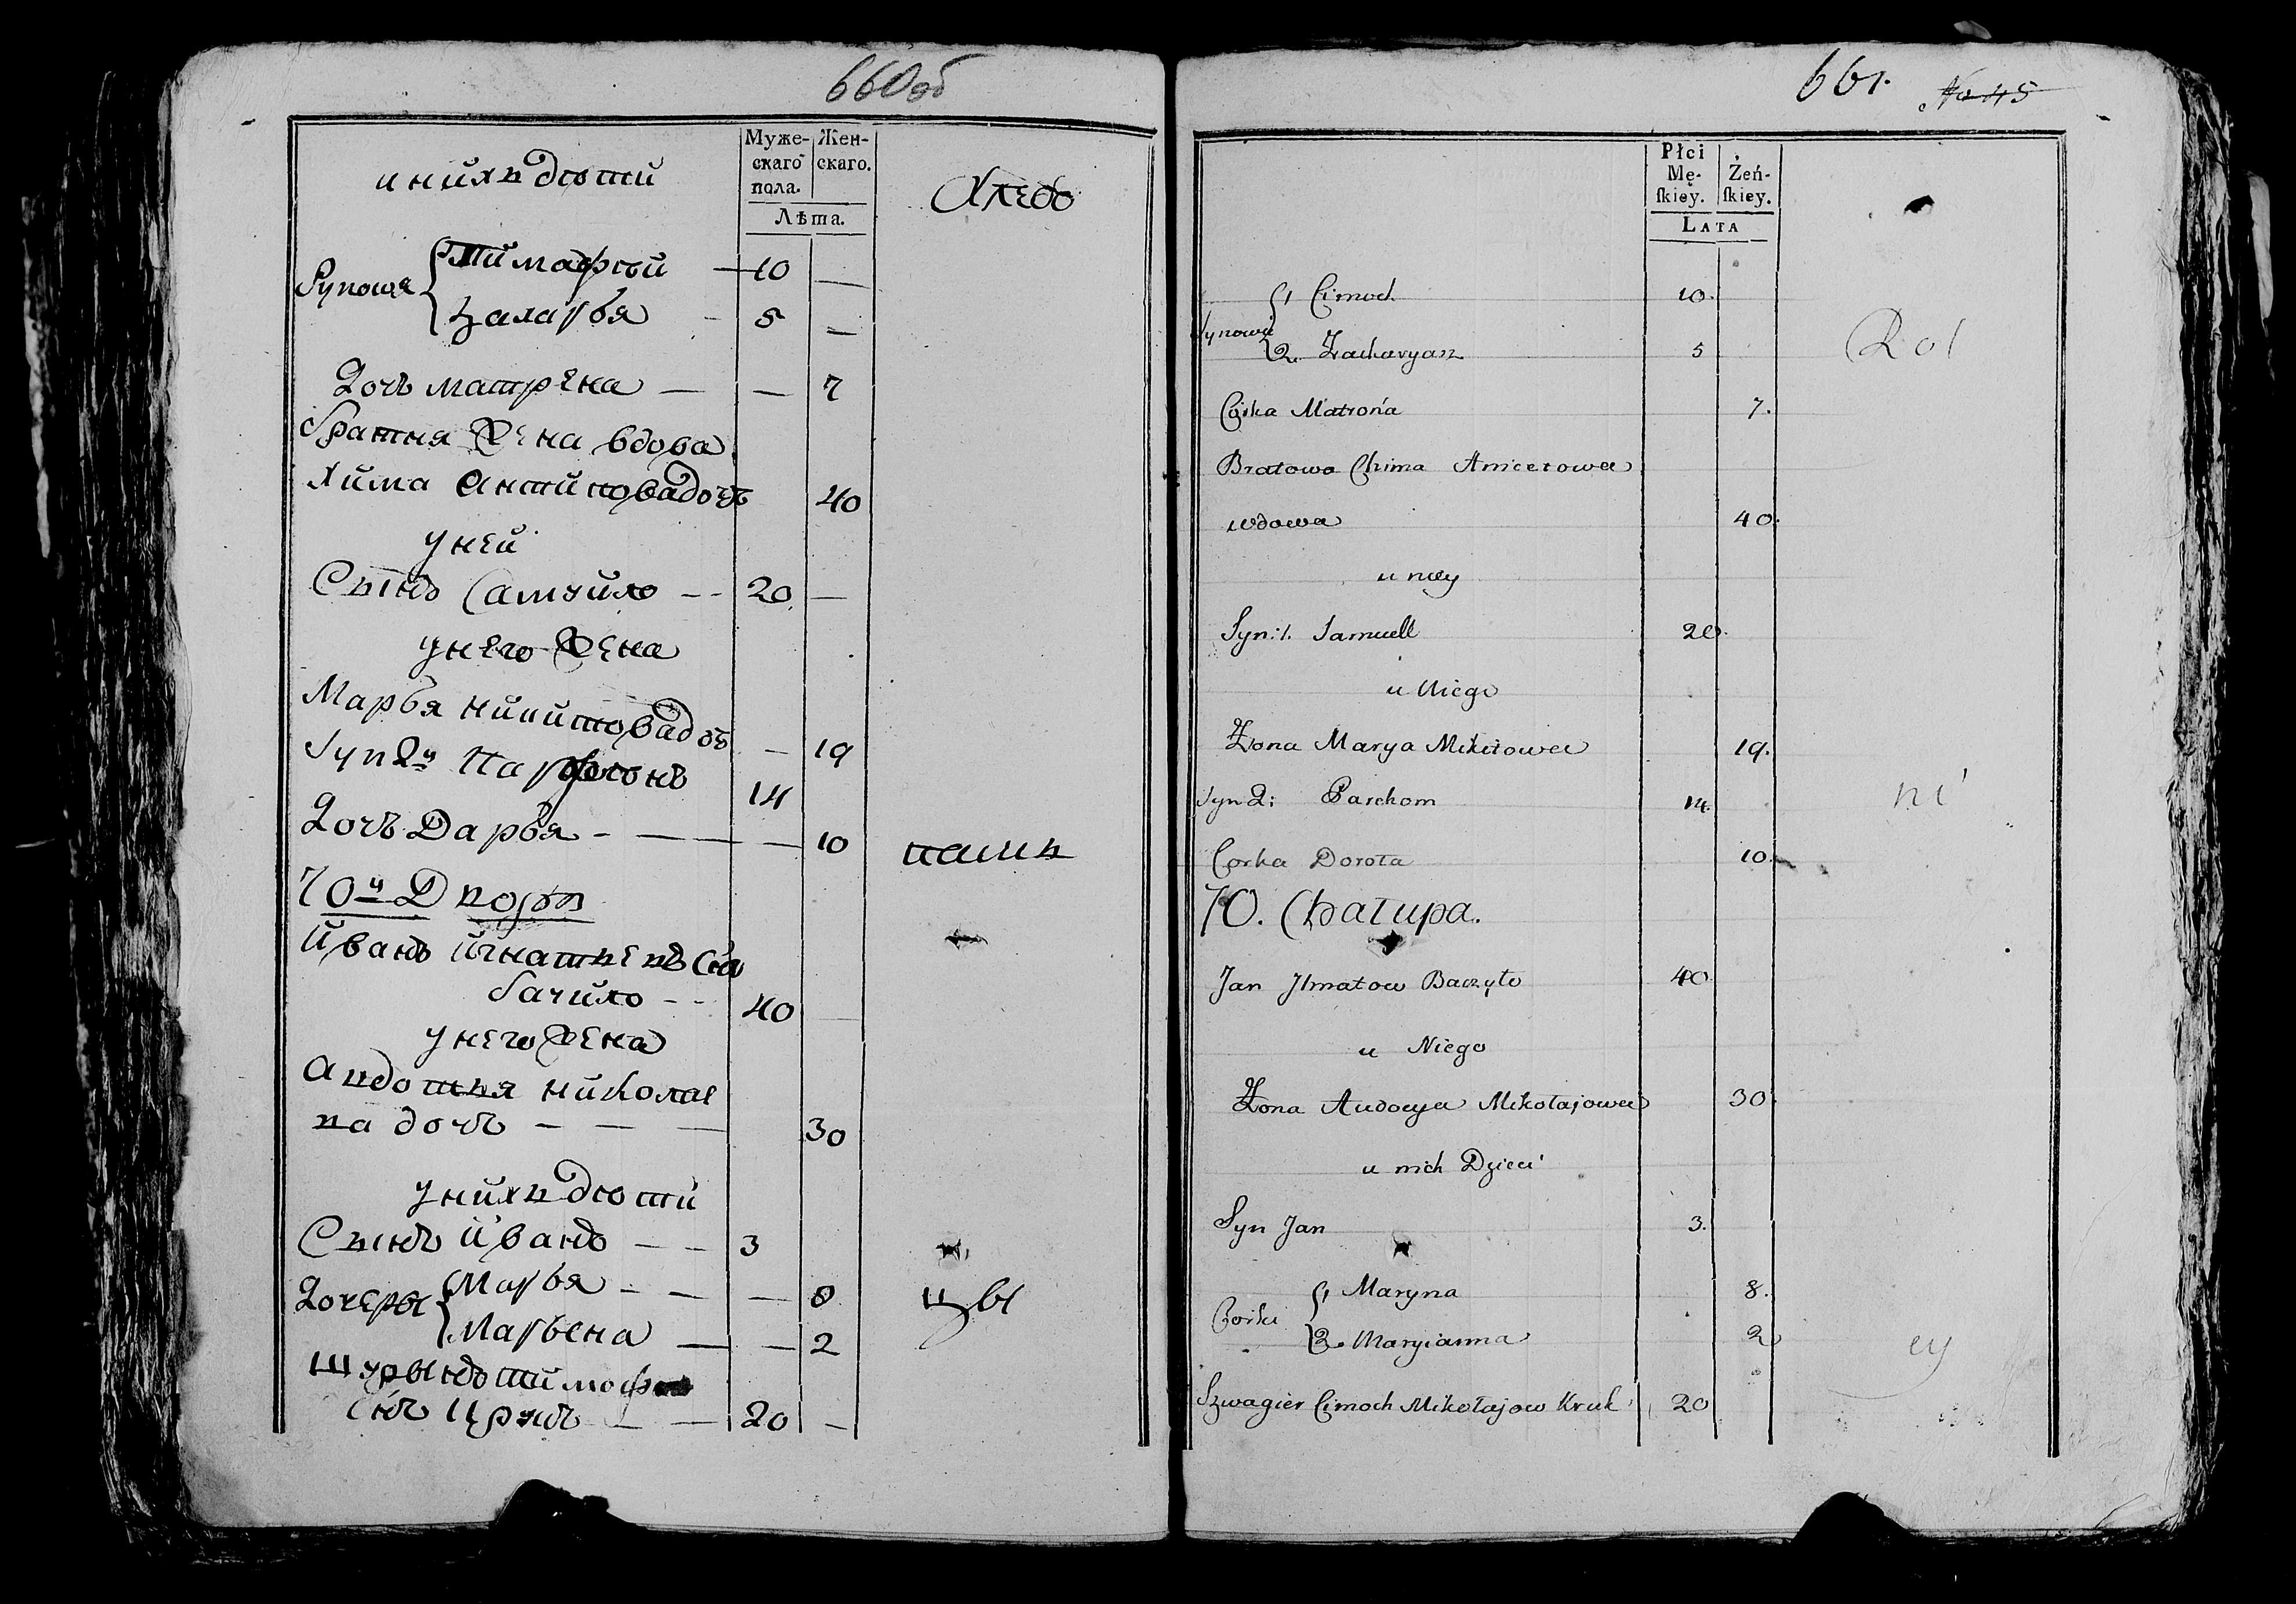 660об
Муже-
скаго
пола.
Жен-
скаго.
Лѣта.
унихъ дѣти
Хлебо
Synowie
Тимафѣй — 10 —
Захарья - 5 —
Дочь Матрена — — 7
Братня жена вдова
Хима Антиповадочь 40
Уней
Сынъ Самуйло - - 20 —
Унего жена
Марья Никитовадоч — 19
Syn 2й Парфенъ 14
Дочь Дарья - — — 10
пашь
70й Дворъ
Иванъ Игнатьевъ Снъ
Бачило - - 40 —
Унего жена
Авдотья Николае
ва дочь — — — 30
Унихъ дѣти
Сынъ Иванъ — - 3
Дочеры
Марья - — — 8
Марьена — — 2
цы
Шурынъ Тимофей
Снъ Црукъ — — 20 —
661. No 45
Płci
Mę-
ſkiey.
Żeń-
ſkiey.
LATA
Synowie
1 Cimoch 10.
2. Zacharyasz 5
Rol
Córka Matrona 7.
Bratowa Chima Anicetowa
wdowa 40.
u niey
Syn: 1. Samuell 20.
u Niego
Żona Marya Mikitowa 19.
Syn 2: Parchom 14.
ni
Corka Dorota 10.
70. Chałupa.
Jan Ilmatow Baczyło 40.
u Niego
Żona Audocya Mikołajowa 30.
u nich Dzieci
Syn Jan 3.
Corki
1 Maryna 8.
2. Maryianna 2
cy
Szwagier Cimoch Mikołajow Kruk 20